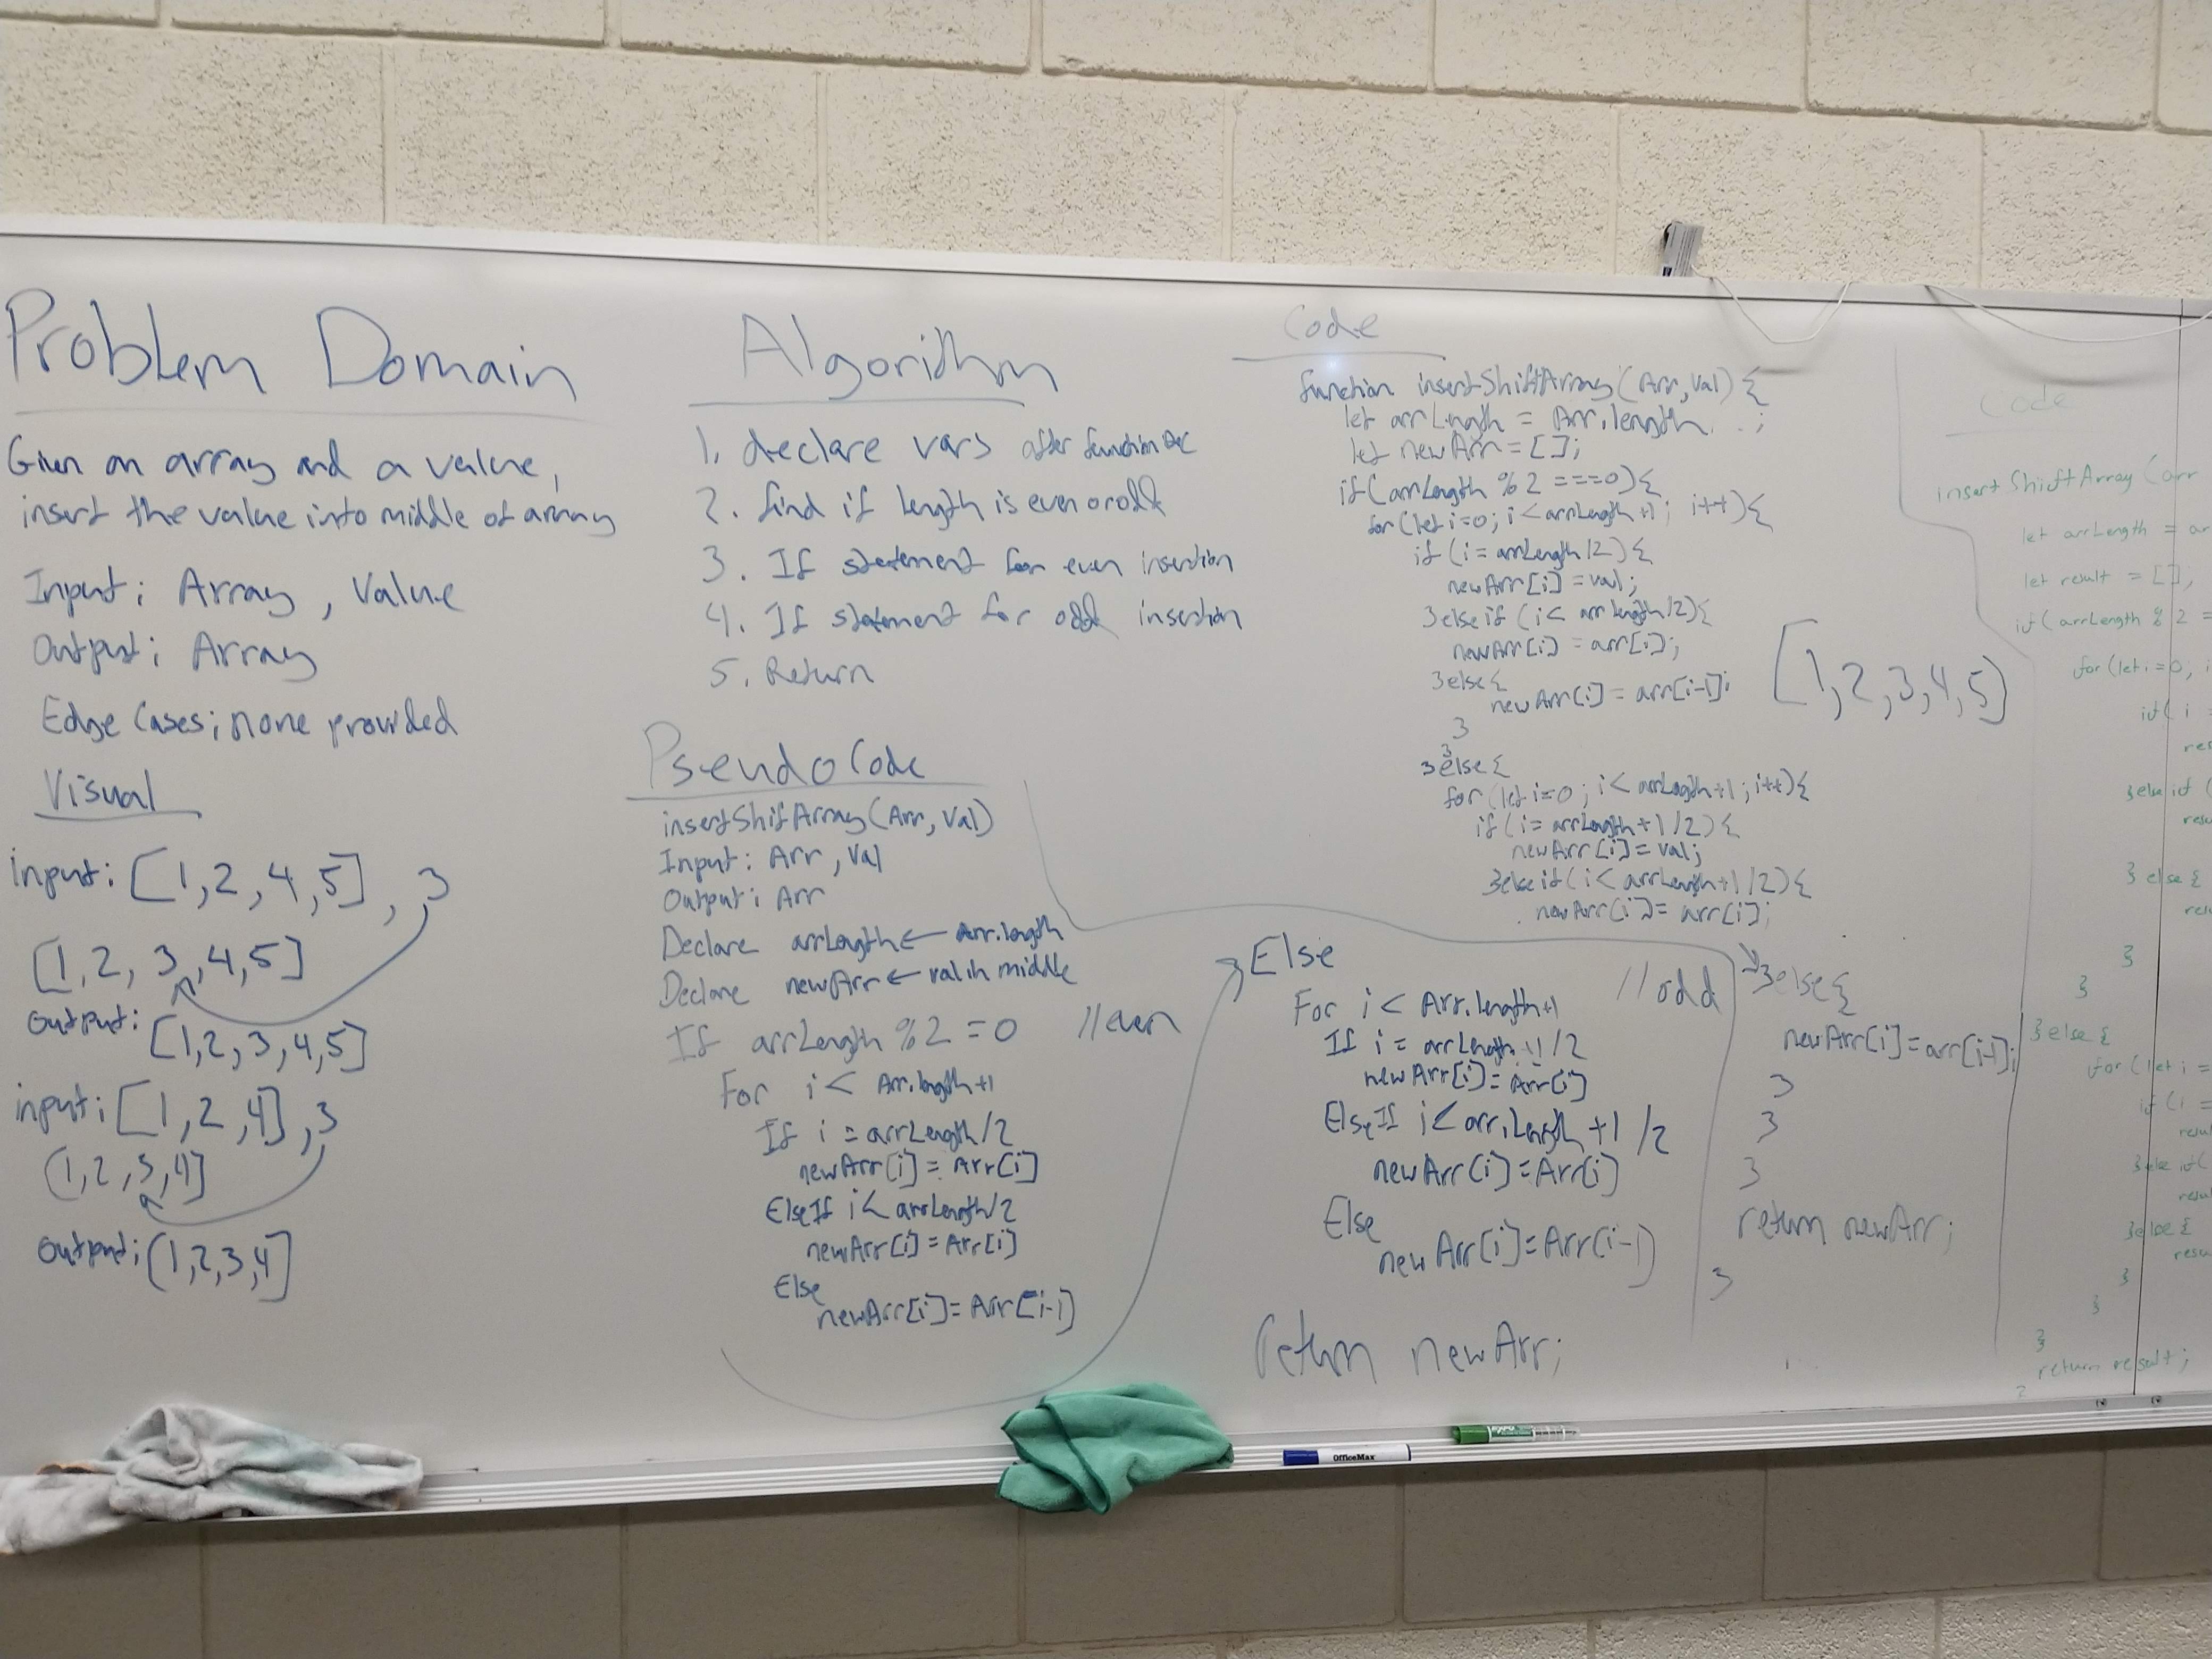 Problem Domain
Given an array and a value,
insert the value into middle of array
Input: Array, Value
Output: Array
Edge Cases: none provided
Visual
input: [1,2,4,5], 3
[1,2,3,4,5]
output: [1,2,3,4,5]
input: [1,2,4],3
[1,2,3,4]
output: [1,2,3,4]
Algorithm
1. declare vars after function dec
2. find if length is even or odd
3. If statement for even insertion
4. If statement for odd insertion
5. Return
PseudoCode
insertShiftArray(Arr, Val)
Input: Arr, Val
Output: Arr
Declare arrLength ← Arr.length
Declare newArr ← val in middle
If arrLength %2 = 0 //even
For i < Arr.length+1
If i = arrLength/2
newArr[i] = Arr[i]
ElseIf i < arrLength/2
newArr[i] = Arr[i]
Else
newArr[i] = Arr[i-1]
Else //odd
For i < Arr.length+1
If i = arrLength+1/2
newArr[i] = Arr[i]
ElseIf i < arr.Length +1/2
newArr[i] = Arr[i]
Else
newArr[i] = Arr[i-1]
return newArr;
Code
function insertShiftArray(Arr, Val) {
let arrLength = Arr.length ;
let newArr = [];
if (arrLength %2 === 0) {
for (let i=0; i < arrLength+1; i++) {
if (i = arrLength/2) {
newArr[i] = val;
}else if (i < arrLength/2) {
newArr[i] = arr[i];
}else {
newArr[i] = arr[i-1];
}
}
}else {
for (let i=0; i < arrLength+1; i++) {
if (i = arrLength+1/2) {
newArr[i] = val;
}else if (i < arrLength+1/2) {
newArr[i] = arr[i];
}else {
newArr[i] = arr[i-1];
}
}
}
return newArr;
}
[1,2,3,4,5]
Code
insertShiftArray (arr
let arrLength = ar
let result = [];
if (arrLength % 2 =
for (let i = 0; i
if( i =
res
}else if (
resu
} else {
resu
}
}
}else {
for (let i =
if (i =
resul
}else if(
resul
}else {
resu
}
}
}
return result;
OfficeMax